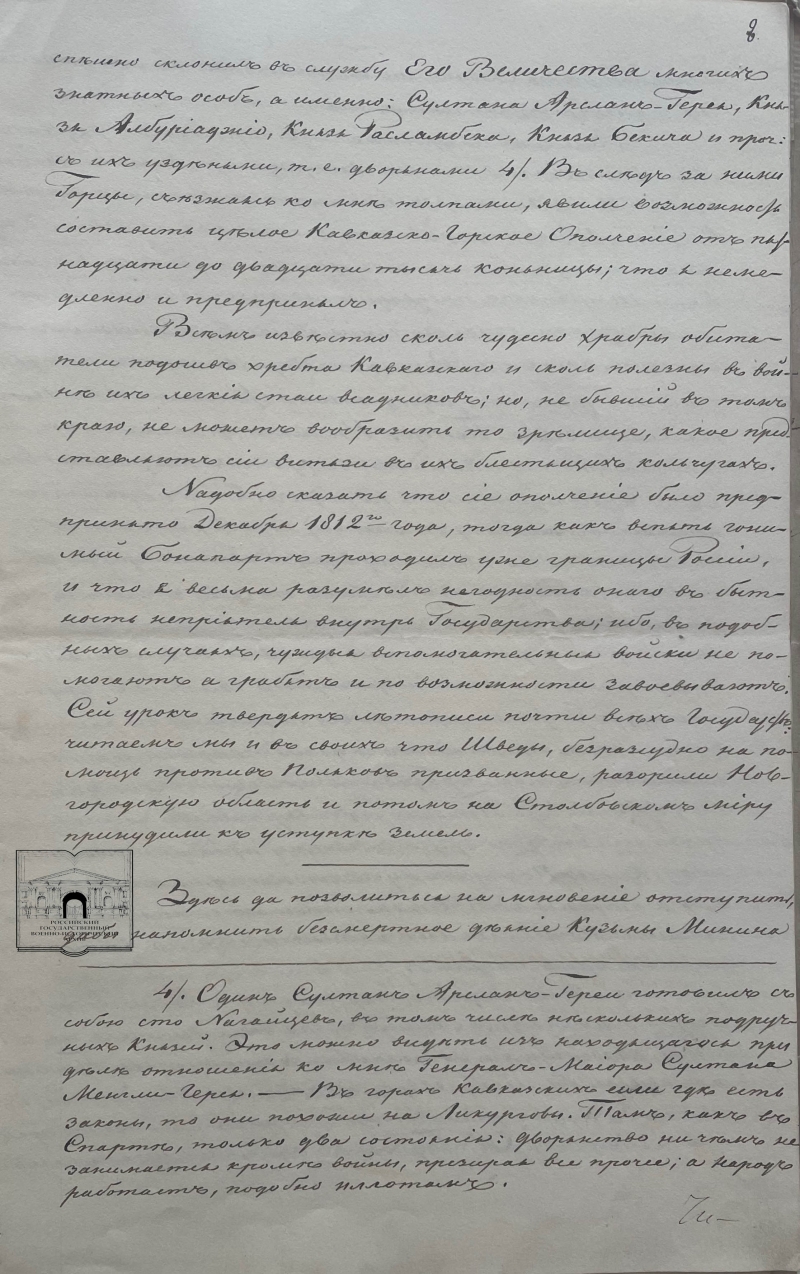 8
спѣшно склонилъ въ службу Его Величества многихъ
знатныхъ особъ, а именно: Султана Арсланъ-Герея, Кня-
зя Албуріаджіо, Князя Расламбека, Князя Бекича и проч:
съ ихъ узденями, т. е. дворянами 4/. Въ слѣдъ за ними
Горцы, съѣзжаясь ко мнѣ толпами, явили возможность
составить цѣлое Кавказско-Горское Ополченіе отъ пят-
надцати до двадцати тысячь конницы; что я неме-
дленно и предпринялъ.
Всѣмъ извѣстно сколь чудесно храбры обита-
тели подошвъ хребта Кавказскаго и сколь полезны въ вой-
нѣ ихъ легкія стаи всадниковъ; но, не бывшій въ томъ
краю, не можетъ вообразить то зрѣлище, какое пред-
ставляютъ сіи витязи въ ихъ блестящихъ кольчугахъ.
Надобно сказать что сіе ополченіе было пред-
принято Декабря 1812го года, тогда какъ вспять гони-
мый Бонапартъ проходилъ уже границы Росіи,
и что я весьма разумѣлъ негодность онаго въ быт-
ность непріятеля внутрь Государства; ибо, въ подоб-
ныхъ случаяхъ, чуждыя вспомогательныя войски не по-
могаютъ а грабятъ и по возможности завоевываютъ.
Сей урокъ твердятъ лѣтописи почти всѣхъ Государствъ:
читаемъ мы и въ своихъ что Шведы, безразсудно на по-
мощь противъ Поляковъ призванные, разорили Нов-
городскую область и потомъ на Столбовскомъ міру
принудили къ уступкѣ земель.
Здѣсь да позволиться на мгновеніе отступить,
чтобъ напомнить безсмертное дѣяніе Кузьмы Минина
РОССИЙСКИЙ
ГОСУДАРСТВЕННЫЙ
ВОЕННО-ИСТОРИЧЕСКИЙ
АРХИВ
4/. Одинъ Султанъ Арсланъ-Герей готовилъ съ
собою сто Нагайцевъ, въ томъ числѣ нѣсколькихъ подруч-
ныхъ Князей. Это можно видѣть изъ находящагося при
дѣлѣ отношенія ко мнѣ Генералъ-Маіора Султана
Менгли-Герея. — Въ горахъ Кавказскихъ если гдѣ есть
законы, то они похожи на Ликурговы. Тамъ, какъ въ
Спартѣ, только два состоянія: дворянство ничѣмъ не
занимается кромѣ войны, презирая все прочее; а народъ
работаетъ, подобно иллотамъ.